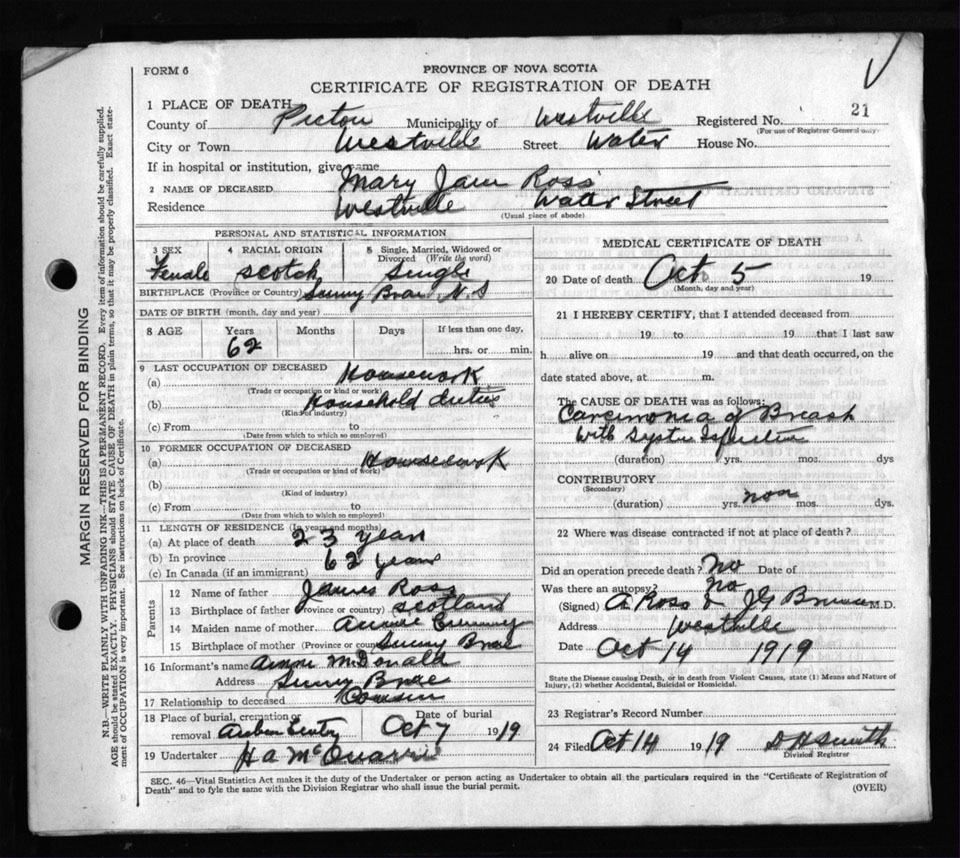 FORM 6
PROVINCE OF NOVA SCOTIA
CERTIFICATE OF REGISTRATION OF DEATH
1 PLACE OF DEATH
County of Pictou Municipality of Westville Registered No. 21
(For use of Registrar General only)
City or Town Westville Street Water House No.
If in hospital or institution, give name
2 NAME OF DECEASED Mary Jane Ross
Residence Westville Water Street
(Usual place of abode)
PERSONAL AND STATISTICAL INFORMATION
3 SEX 4 RACIAL ORIGIN 5 Single, Married, Widowed or Divorced (Write the word)
Female Scotch Single
BIRTHPLACE (Province or Country) Sunny Brae N.S
DATE OF BIRTH (month, day and year)
8 AGE Years Months Days If less than one day,
62 hrs. or min.
9 LAST OCCUPATION OF DECEASED
(a) Housework
(Trade or occupation or kind of work)
(b) Household duties
(Kind of industry)
(c) From to
(Date from which to which so employed)
10 FORMER OCCUPATION OF DECEASED
(a) Housework
(Trade or occupation or kind of work)
(b)
(Kind of industry)
(c) From to
(Date from which to which so employed)
11 LENGTH OF RESIDENCE (In years and months)
(a) At place of death 23 years
(b) In province 62 years
(c) In Canada (if an immigrant)
Parents
12 Name of father James Ross
13 Birthplace of father (Province or country) Scotland
14 Maiden name of mother Annie
15 Birthplace of mother (Province or country) Sunny Brae
16 Informant's name McDonald
Address Sunny Brae
17 Relationship to deceased Cousin
18 Place of burial, cremation or removal Date of burial
Oct 7 1919
19 Undertaker H A McQuarrie
MEDICAL CERTIFICATE OF DEATH
20 Date of death Oct 5 19
(Month, day and year)
21 I HEREBY CERTIFY, that I attended deceased from
19 to 19 that I last saw
h alive on 19 and that death occurred, on the
date stated above, at m.
The CAUSE OF DEATH was as follows:
Carcinonia of Breast
with
(duration) yrs. mos. dys
CONTRIBUTORY
(Secondary)
(duration) yrs. mos. dys.
22 Where was disease contracted if not at place of death?
Did an operation precede death? No Date of
Was there an autopsy? No
(Signed) A Ross M.D.
Address Westville
Date Oct 14 1919
State the Disease causing Death, or in death from Violent Causes, state (1) Means and Nature of
Injury, (2) whether Accidental, Suicidal or Homicidal.
23 Registrar's Record Number
24 Filed Oct 14 1919 D H Smith
Division Registrar
SEC. 46—Vital Statistics Act makes it the duty of the Undertaker or person acting as Undertaker to obtain all the particulars required in the "Certificate of Registration of
Death" and to fyle the same with the Division Registrar who shall issue the burial permit. (OVER)
MARGIN RESERVED FOR BINDING
N.B.—WRITE PLAINLY WITH UNFADING INK—THIS IS A PERMANENT RECORD. Every item of information should be carefully supplied.
AGE should be stated EXACTLY. PHYSICIANS should STATE CAUSE OF DEATH in plain terms, so that it may be properly classified. Exact state-
ment of OCCUPATION is very important. See instructions on back of Certificate.